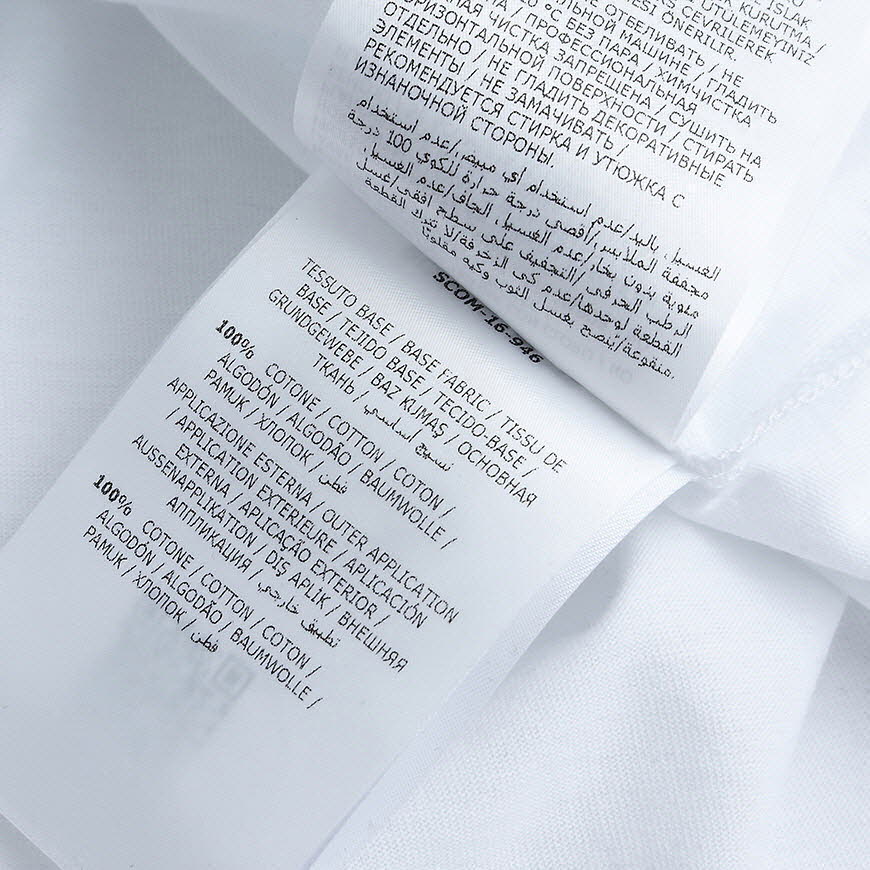 ISLAK
KURUTMA /
ÜTÜLEMEYİNİZ
ÇEVRİLEREK
ÖNERİLİR.
ОТБЕЛИВАТЬ / НЕ
МАШИНЕ / ГЛАДИТЬ
°C БЕЗ ПАРА / ХИМЧИСТКА
ЧИСТКА / ПРОФЕССИОНАЛЬНАЯ
ЗАПРЕЩЕНА / СУШИТЬ НА
ГОРИЗОНТАЛЬНОЙ ПОВЕРХНОСТИ / СТИРАТЬ
ОТДЕЛЬНО / НЕ ГЛАДИТЬ ДЕКОРАТИВНЫЕ
ЭЛЕМЕНТЫ / НЕ ЗАМАЧИВАТЬ /
РЕКОМЕНДУЕТСЯ СТИРКА И УТЮЖКА С
ИЗНАНОЧНОЙ СТОРОНЫ.
الغسيل باليد/عدم استخدام أي مبيض/عدم استخدام
مجففة الملابس/أقصى درجة حرارة للكوي 100 درجة
مئوية بدون بخار/عدم الغسيل الجاف/عدم الغسيل
الرطب الحرفي/التجفيف على سطح افقي/غسل
القطعة لوحدها/عدم كي الزخرفة/لا تترك القطعة
منقوعة/يُنصح بغسل الثوب وكيه مقلوبًا.
SCOM-16-946
TESSUTO BASE / BASE FABRIC / TISSU DE
BASE / TEJIDO BASE / TECIDO-BASE /
GRUNDGEWEBE / BAZ KUMAŞ / ОСНОВНАЯ
ТКАНЬ / نسيج أساسي
100% COTONE / COTTON / COTON /
ALGODÓN / ALGODÃO / BAUMWOLLE /
PAMUK / ХЛОПОК / قطن
APPLICAZIONE ESTERNA / OUTER APPLICATION
/ APPLICATION EXTERIEURE / APLICACIÓN
EXTERNA / APLICAÇÃO EXTERIOR /
AUSSENAPPLIKATION / DIŞ APLİK / ВНЕШНЯЯ
АППЛИКАЦИЯ / تطبيق خارجي
100% COTONE / COTTON / COTON /
ALGODÓN / ALGODÃO / BAUMWOLLE /
PAMUK / ХЛОПОК / قطن